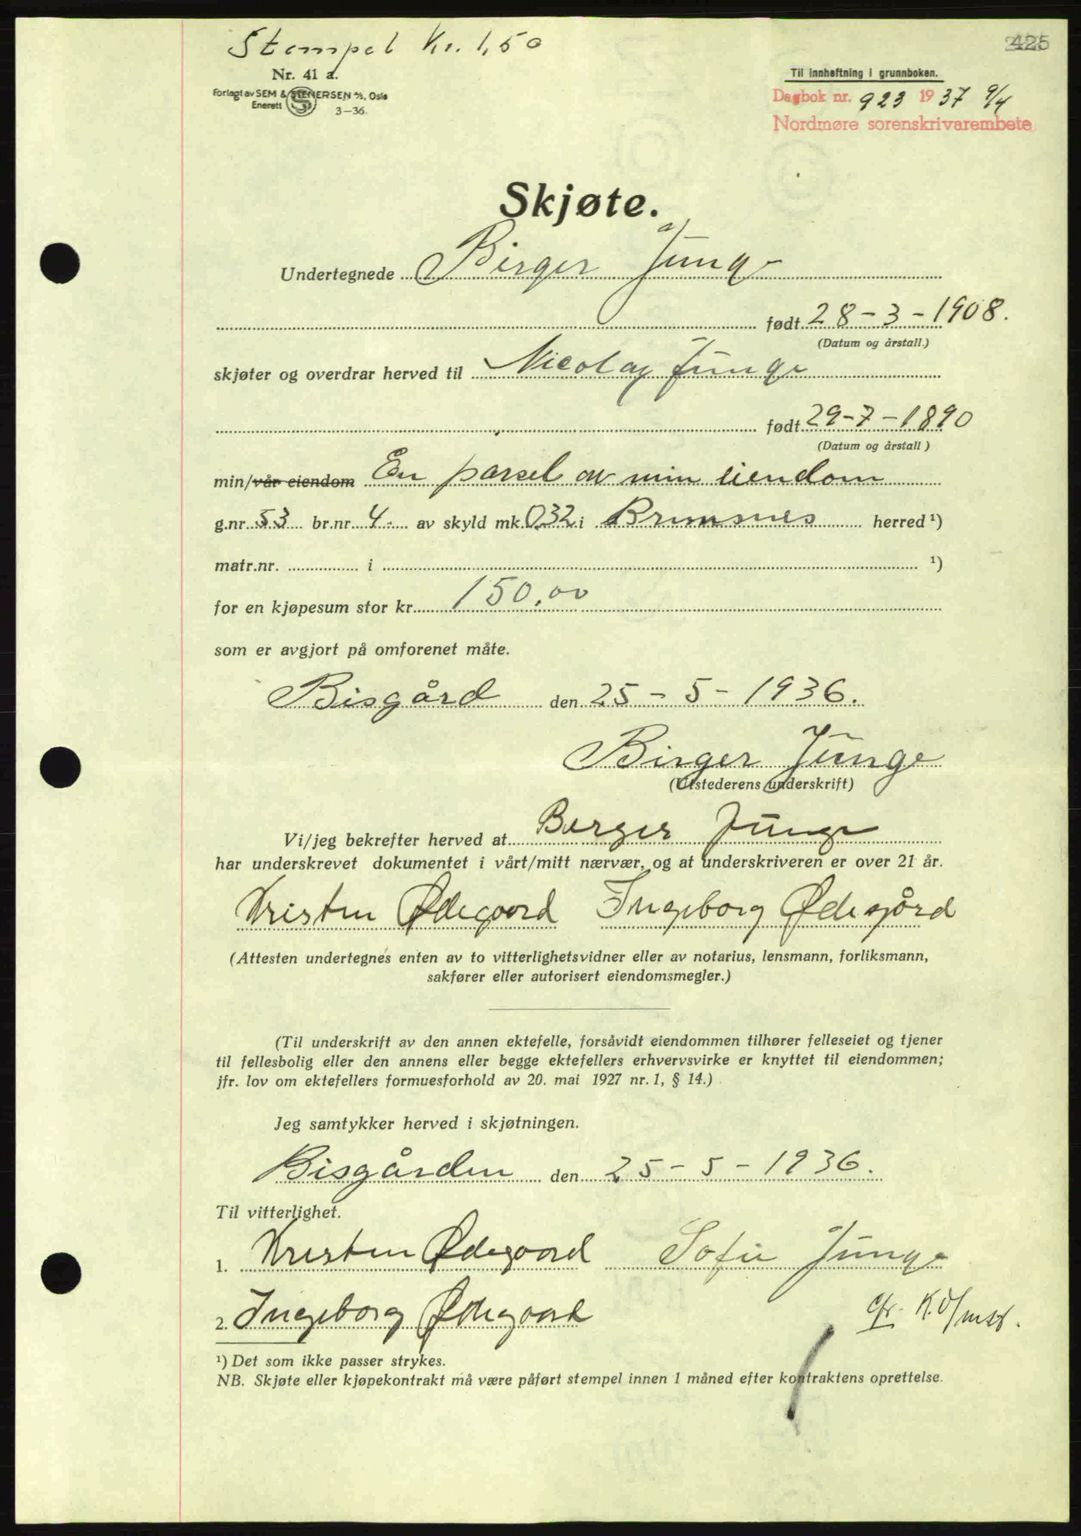 Stempel Kr. 1,50
425
Nr. 41 a.
Forlagt av SEM & STENERSEN A/S, Oslo
Enerett
3-36.
Til innheftning i grunnboken.
Dagbok nr. 923 1937 9/4
Nordmøre sorenskrivarembete
Skjøte.
Undertegnede Birger Junge
født 28-3-1908.
(Datum og årstall.)
skjøter og overdrar herved til Nicolay Junge
født 29-7-1890
(Datum og årstall )
min/vår eiendom En parsel av min eiendom
g.nr. 53 br.nr. 4. av skyld mk. 0,32 i Brimsnes herred ¹)
matr.nr. i ¹)
for en kjøpesum stor kr. 150,00
som er avgjort på omforenet måte.
Bisgård den 25-5-1936.
Birger Junge
(Utstederens underskrift)
Vi/jeg bekrefter herved at Birger Junge
har underskrevet dokumentet i vårt/mitt nærvær, og at underskriveren er over 21 år.
Kristen Ødegaard Ingeborg Ødegård
(Attesten undertegnes enten av to vitterlighetsvidner eller av notarius, lensmann, forliksmann,
sakfører eller autorisert eiendomsmegler.)
(Til underskrift av den annen ektefelle, forsåvidt eiendommen tilhører felleseiet og tjener
til fellesbolig eller den annens eller begge ektefellers erhvervsvirke er knyttet til eiendommen;
jfr. lov om ektefellers formuesforhold av 20. mai 1927 nr. 1, § 14.)
Jeg samtykker herved i skjøtningen.
Bisgården den 25-5-1936.
Til vitterlighet.
1. Kristen Ødegaard Sofie Junge
2. Ingeborg Ødegaard
¹) Det som ikke passer strykes.
NB. Skjøte eller kjøpekontrakt må være påført stempel innen 1 måned efter kontraktens oprettelse.